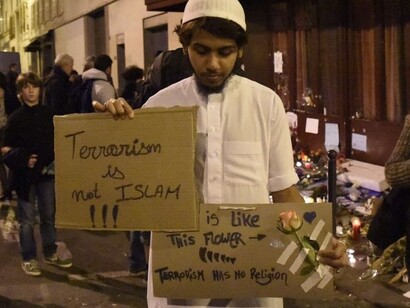 Terrorism
is
not ISLAM
!!!
is like
This Flower →
!!!!!!
Terrorism Has no Religion